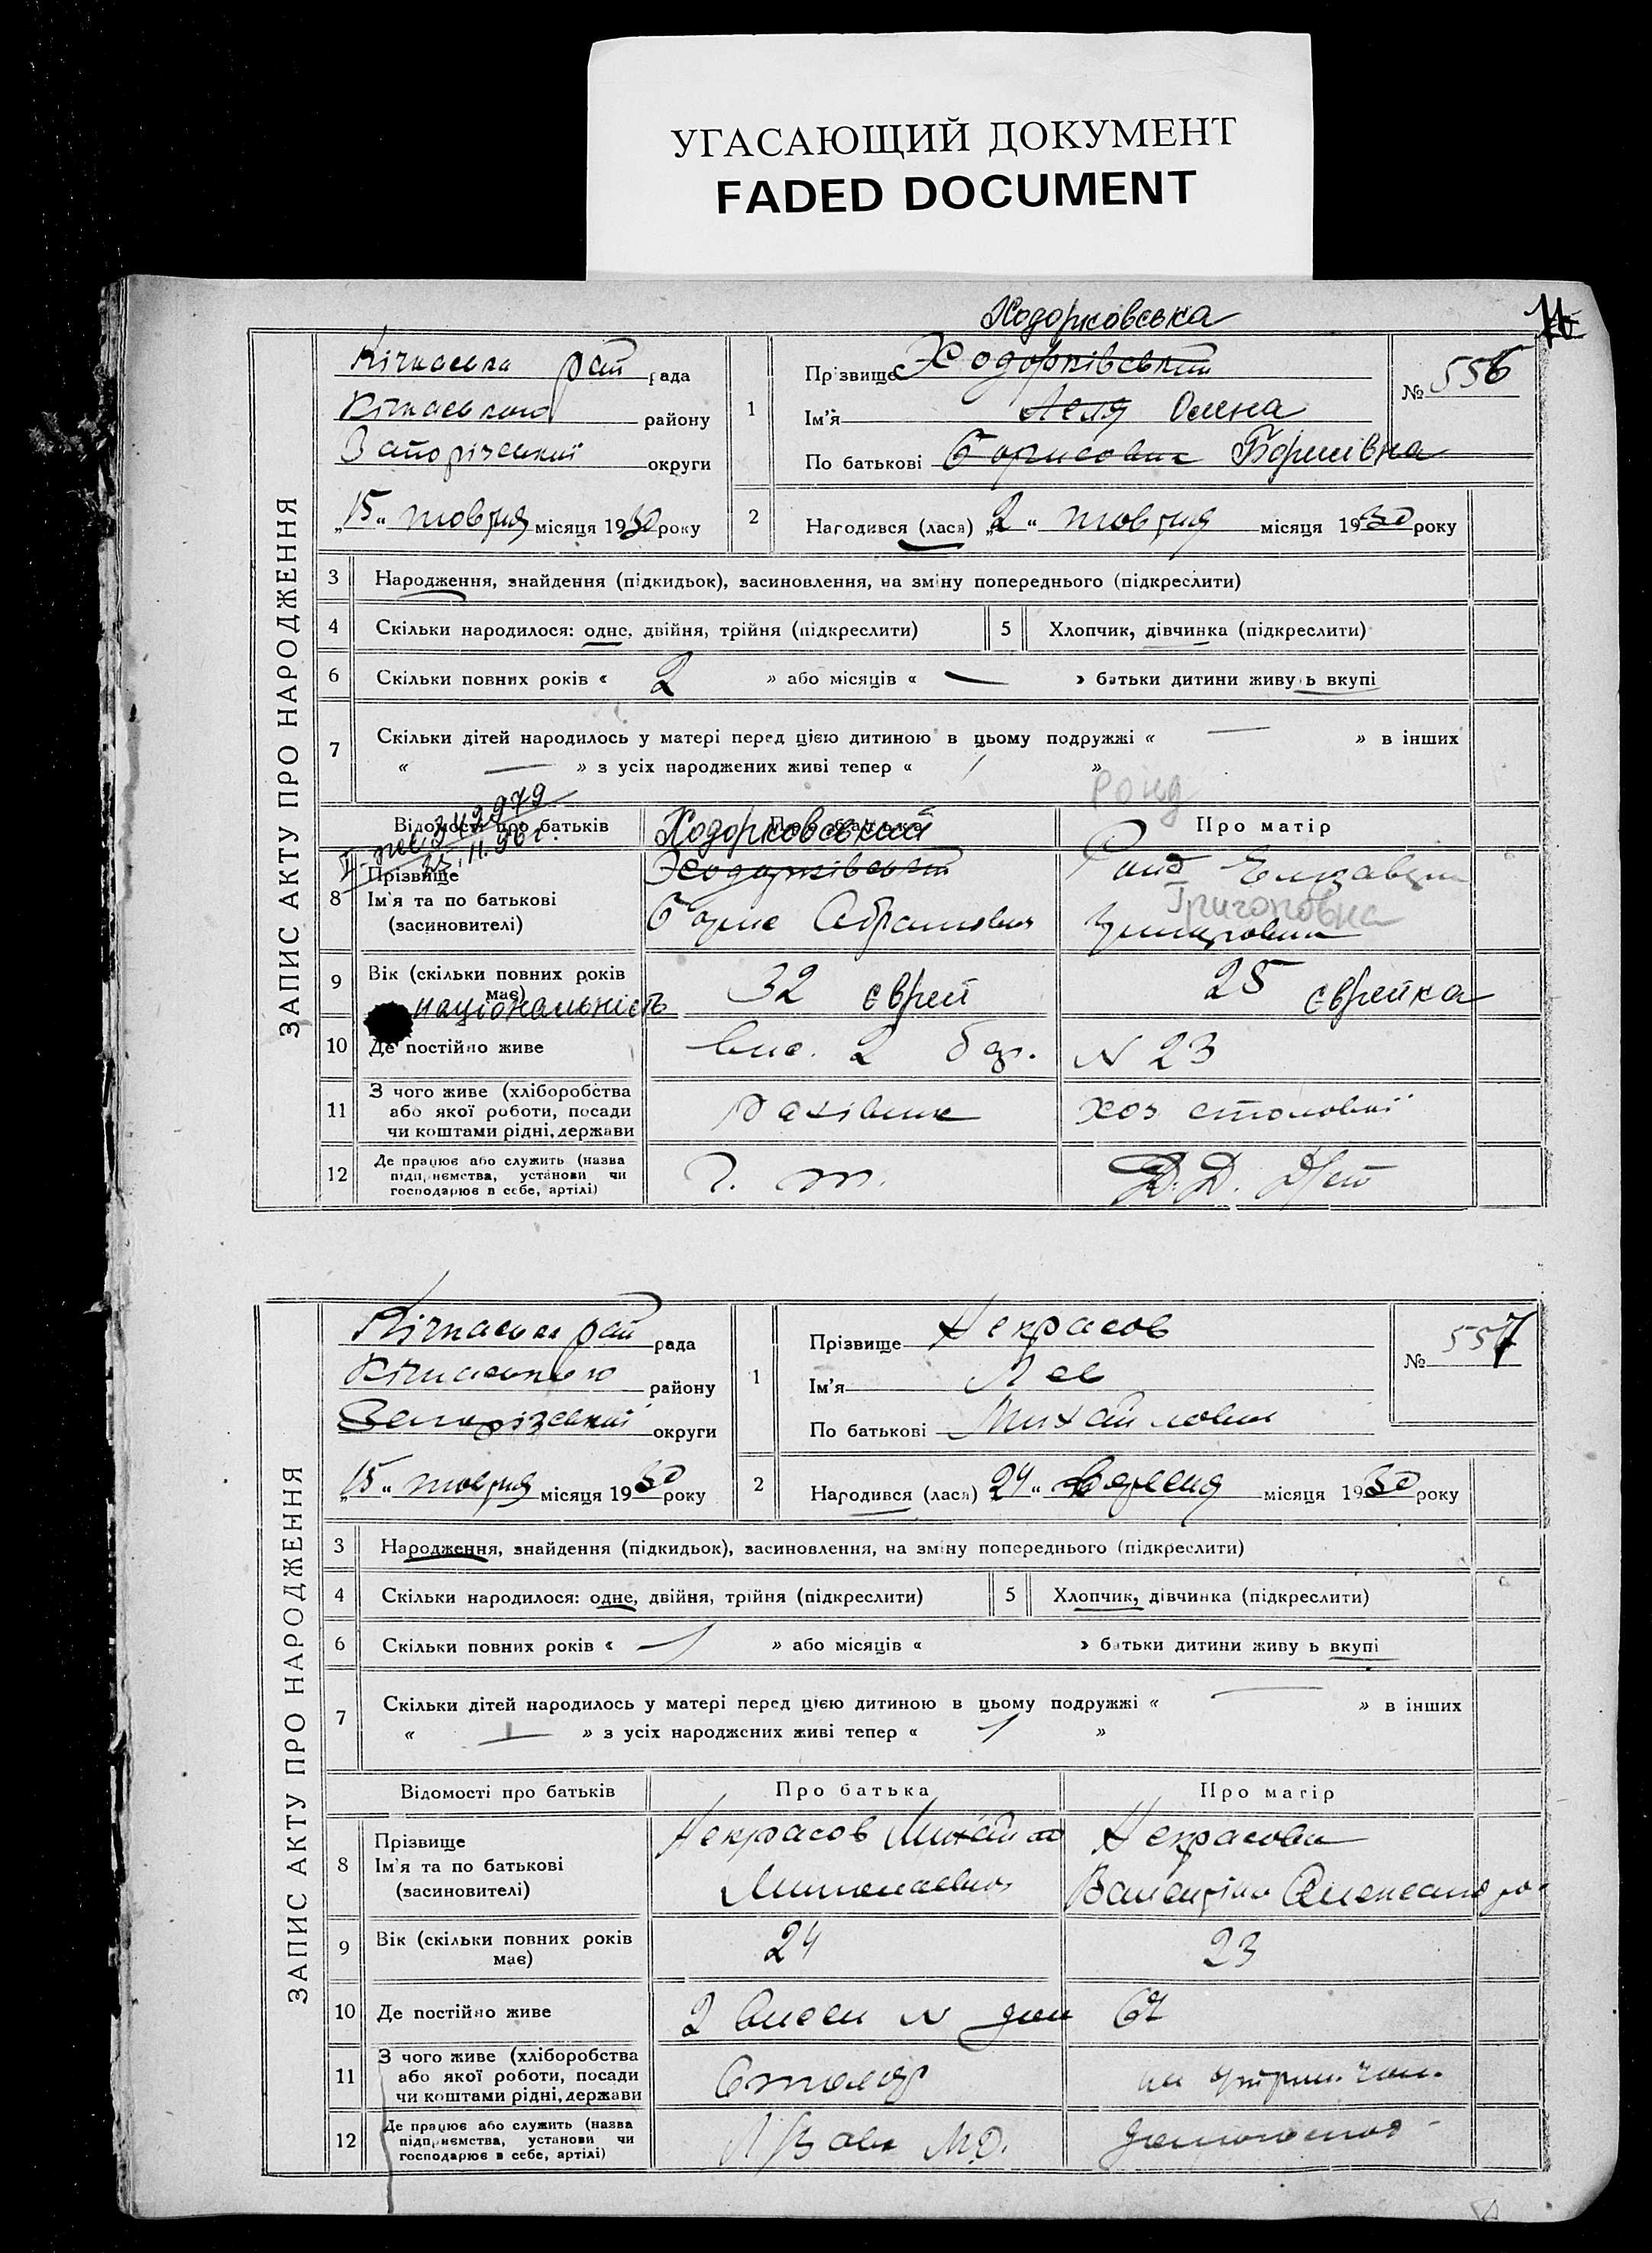 УГАСАЮЩИЙ ДОКУМЕНТ
FADED DOCUMENT
ЗАПИС АКТУ ПРО НАРОДЖЕННЯ
Кічкаська рай рада
Кічкаського району
Запорізської округи
„15“ товтня місяця 1930 року
Ходорковська
1 Прізвище Ходорківський
Ім'я Леля Олена
По батькові Борисовна Борисівна
№ 556
2 Народився (лася) „2“ товтня місяця 1930 року
3 Народження, знайдення (підкидьок), засиновлення, на зміну попереднього (підкреслити)
4 Скільки народилося: одне, двійня, трійня (підкреслити) 5 Хлопчик, дівчинка (підкреслити)
6 Скільки повних років « 2 » або місяців « — » батьки дитини живуть вкупі
7 Скільки дітей народилось у матері перед цією дитиною в цьому подружжі « — » в інших
« — » з усіх народжених живі тепер « / »
Ронд
Відомості про батьків Про батька Про матір
Ходорковський
8 Прізвище
Ім'я та по батькові
(засновителі)
Ходорківський
Борис Абрамович
Ронд Елизавета
Григоровна
9 Вік (скільки повних років
має)
національність
32 єврей
25 єврейка
10 Де постійно живе
вис. 2 бар. N 23
11 З чого живе (хліборобства
або якої роботи, посади
чи коштами рідні, держави
рахівник
хоз столової
12 Де працює або служить (назва
підприємства, установи чи
господарює в себе, артілі)
Д.Д.
ЗАПИС АКТУ ПРО НАРОДЖЕННЯ
Кічкаська рай рада
Кічкаського району
Запорізської округи
„15“ товтня місяця 1930 року
1 Прізвище Некрасов
Ім'я Лев
По батькові Михайлович
№ 557
2 Народився (лася) „24“ вересня місяця 1930 року
3 Народження, знайдення (підкидьок), засиновлення, на зміну попереднього (підкреслити)
4 Скільки народилося: одне, двійня, трійня (підкреслити) 5 Хлопчик, дівчинка (підкреслити)
6 Скільки повних років « 1 » або місяців « » батьки дитини живуть вкупі
7 Скільки дітей народилось у матері перед цією дитиною в цьому подружжі « — » в інших
« — » з усіх народжених живі тепер « 1 »
Відомості про батьків Про батька Про матір
8 Прізвище
Ім'я та по батькові
(засиновителі)
Некрасов Михайло
Николаевич
Некрасова
Валентіна Олександро-
9 Вік (скільки повних років
має)
24
23
10 Де постійно живе
2 висел N дом 67
11 З чого живе (хліборобства
або якої роботи, посади
чи коштами рідні, держави
Столяр
на утрим. чол.
12 Де працює або служить (назва
підприємства, установи чи
господарює в себе, артілі)